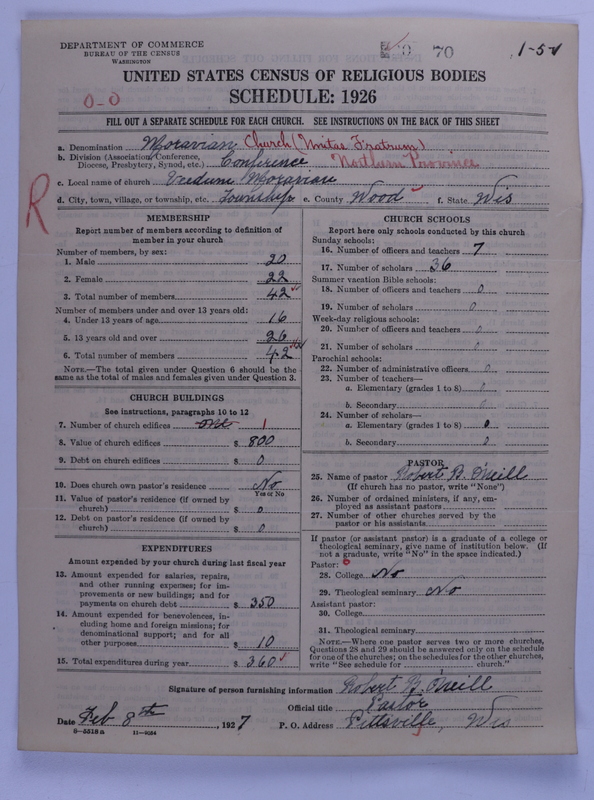 DEPARTMENT OF COMMERCE
BUREAU OF THE CENSUS
WASHINGTON
70
1-5
UNITED STATES CENSUS OF RELIGIOUS BODIES
SCHEDULE: 1926
0-0
FILL OUT A SEPARATE SCHEDULE FOR EACH CHURCH. SEE INSTRUCTIONS ON THE BACK OF THIS SHEET
a. Denomination Moravian Church (Unitas Fratrum)
b. Division (Association, Conference, Diocese, Presbytery, Synod, etc.) Conference Northern Province
c. Local name of church Veedum Moravian
d. City, town, village, or township, etc. Township e. County Wood f. State Wis
R
MEMBERSHIP
Report number of members according to definition of member in your church
Number of members, by sex:
1. Male 20
2. Female 22
3. Total number of members 42
Number of members under and over 13 years old:
4. Under 13 years of age 16
5. 13 years old and over 26
6. Total number of members 42
NOTE.—The total given under Question 6 should be the same as the total of males and females given under Question 3.
CHURCH BUILDINGS
See instructions, paragraphs 10 to 12
7. Number of church edifices one 1
8. Value of church edifices $ 800
9. Debt on church edifices $ 0
10. Does church own pastor's residence No
Yes or No
11. Value of pastor's residence (if owned by church) $ 0
12. Debt on pastor's residence (if owned by church) $ 0
EXPENDITURES
Amount expended by your church during last fiscal year
13. Amount expended for salaries, repairs, and other running expenses; for improvements or new buildings; and for payments on church debt $ 350
14. Amount expended for benevolences, including home and foreign missions; for denominational support; and for all other purposes $ 10
15. Total expenditures during year $ 360
CHURCH SCHOOLS
Report here only schools conducted by this church
Sunday schools:
16. Number of officers and teachers 7
17. Number of scholars 36
Summer vacation Bible schools:
18. Number of officers and teachers 0
19. Number of scholars 0
Week-day religious schools:
20. Number of officers and teachers 0
21. Number of scholars 0
Parochial schools:
22. Number of administrative officers 0
23. Number of teachers—
a. Elementary (grades 1 to 8) 0
b. Secondary 0
24. Number of scholars—
a. Elementary (grades 1 to 8) 0
b. Secondary 0
PASTOR
25. Name of pastor Robert B. O'Neill
(If church has no pastor, write "None")
26. Number of ordained ministers, if any, employed as assistant pastors
27. Number of other churches served by the pastor or his assistants
If pastor (or assistant pastor) is a graduate of a college or theological seminary, give name of institution below. (If not a graduate, write "No" in the space indicated.)
Pastor:
28. College No
29. Theological seminary No
Assistant pastor:
30. College
31. Theological seminary
NOTE.—Where one pastor serves two or more churches, Questions 28 and 29 should be answered only on the schedule for one of the churches; on the schedules for the other churches, write "See schedule for church."
Signature of person furnishing information Robert B. O'Neill
Official title Pastor
Date Feb 8th, 1927 P. O. Address Pittsville, Wis
8—5518 a 11—9054